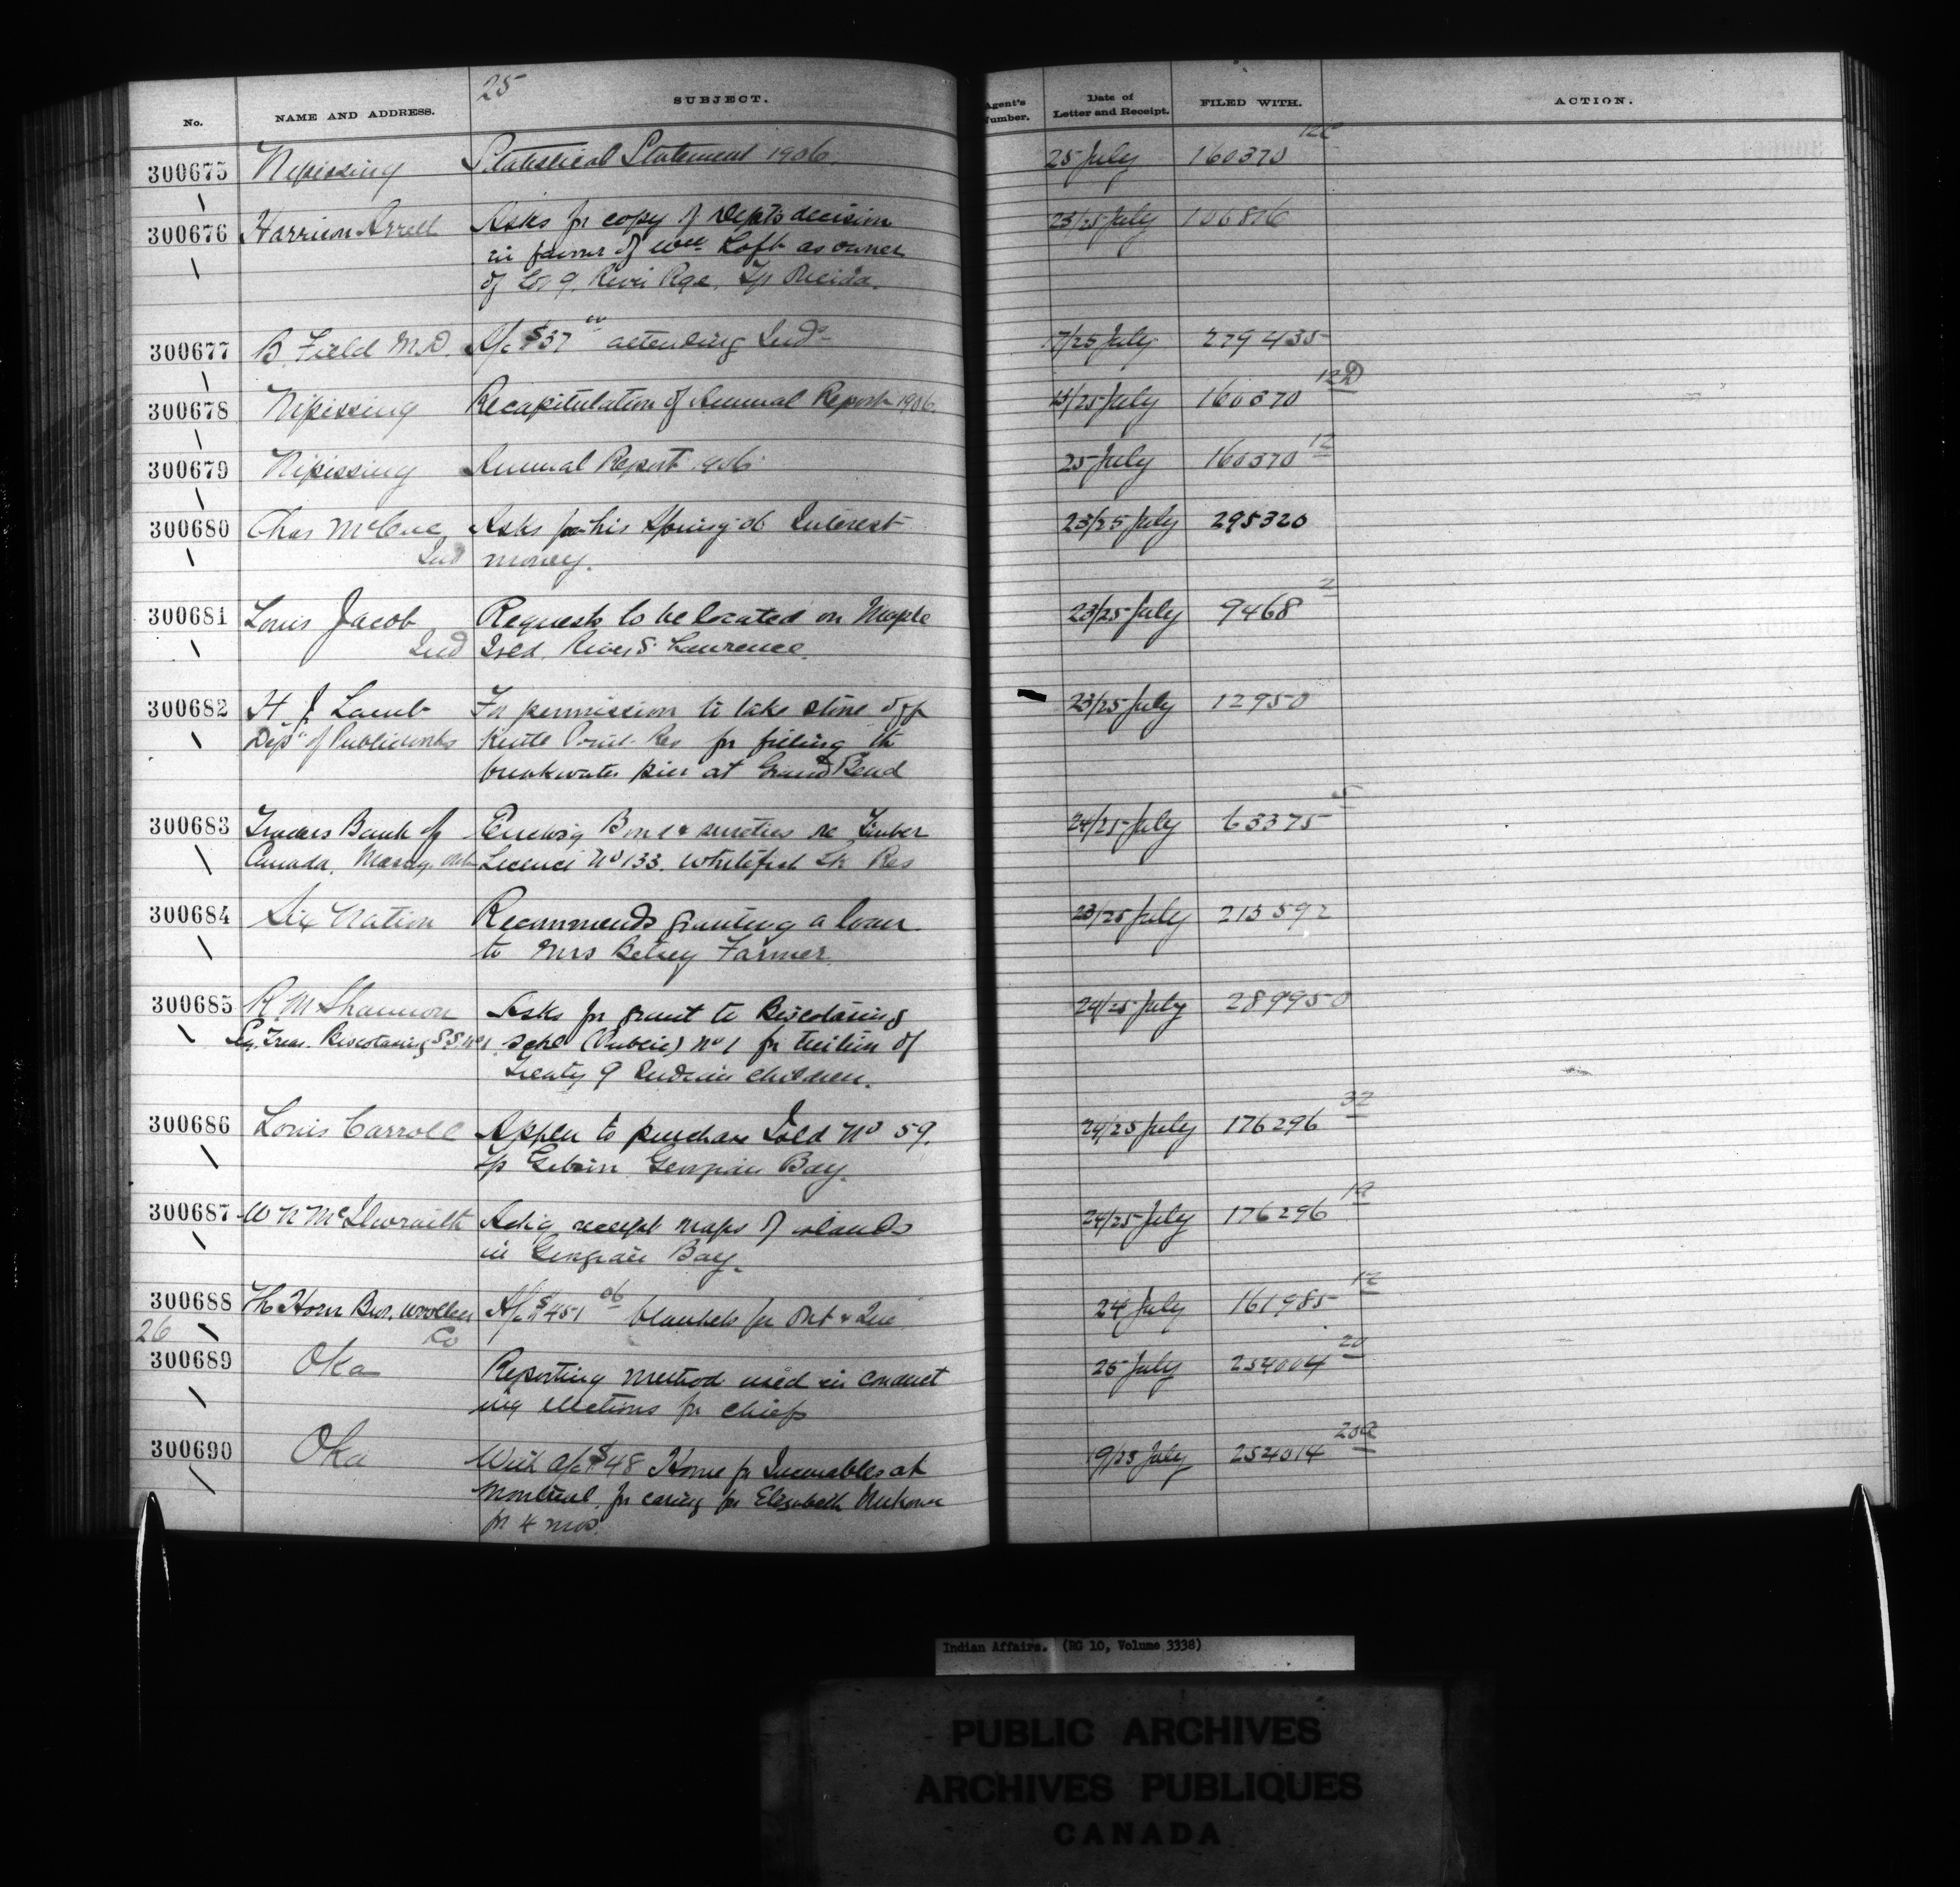 25
No. NAME AND ADDRESS. SUBJECT. Agent's Number. Date of Letter and Receipt. FILED WITH. ACTION.
300675 Nipissing Statistical Statement 1906. 25 July 160370 12C
300676 Harrison Arrell Asks for copy of Dept's decision 23/25 July 106816
in favour of Wm Loft as owner
of Lot 9. River Rge. Tp Oneida.
300677 B. Field M.D. A/c $37 00 attending Inds 17/25 July 279435
300678 Nipissing Recapitulation of Annual Report 1906. 25 July 160370 12D
300679 Nipissing Annual Report 1906 25 July 160370 12
300680 Chas McCue Asks for his Spring 06 Interest 23/25 July 295320
Ind money.
300681 Louis Jacob Requests to be located on Maple 23/25 July 9468 2
Ind Isld. River St Lawrence.
300682 H. J. Lamb For permission to take stone off 23/25 July 12950
Dept of Public Works Kettle Point Res for filling the
breakwater pier at Grand Bend
300683 Traders Bank of Enclosg Bond & sureties re Timber 24/25 July 63375 5
Canada, Massey Licence No 133. Whitefish Lk Res
300684 Six Nation Recommends granting a loan 23/25 July 213592
to Mrs Betsey Farmer.
300685 R. M. Shannon Asks for grant to Biscotasing 24/25 July 289950
Sey. Treas. Biscotasing S.S. No 1 schl (Public) No 1 for tuition of
Treaty 9 Indian children.
300686 Louis Carroll Appln to purchase Isld No 59. 24/25 July 176296 32
Tp Gibson Georgian Bay.
300687 W N McIlwraith Ackg receipt maps of islands 24/25 July 176296 19
in Georgian Bay.
300688 The Horn Bros. Woollen A/c $451 06 blankets for Ont & Que 24 July 161985 12
26 Co
300689 Oka Reporting method used in conduct 25 July 254004 20
ing elections for chiefs
300690 Oka With a/c $48 Home for Incurables at 19/25 July 254014
Montreal, for caring for Elizabeth
for 4 mos.
Indian Affairs. (RG 10, Volume 3338)
PUBLIC ARCHIVES
ARCHIVES PUBLIQUES
CANADA